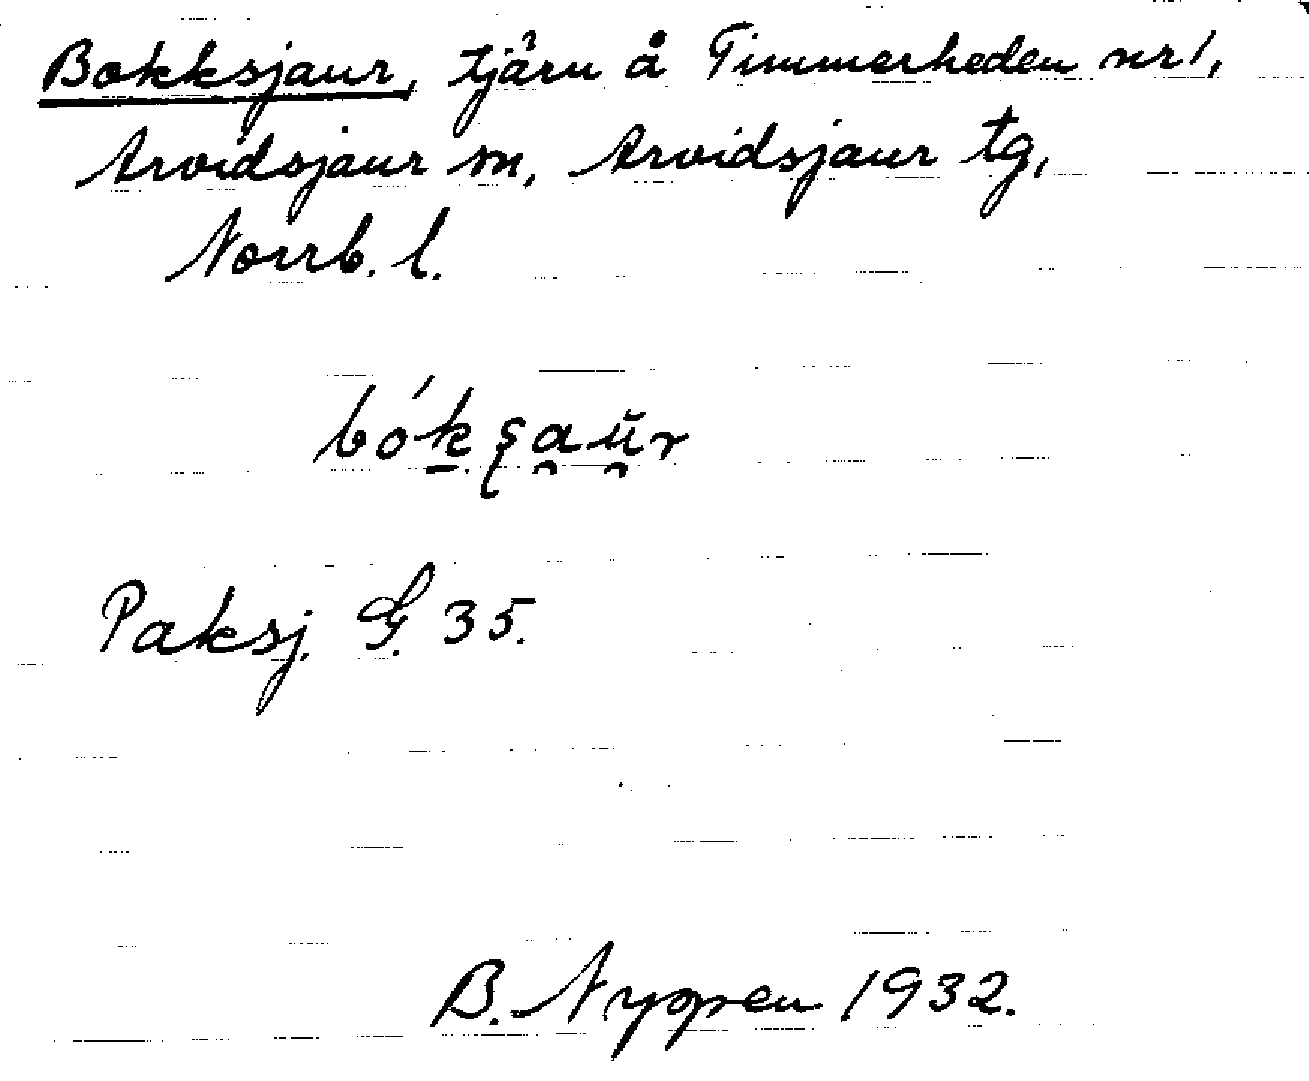 Bokksjaur, tjärn å Timmerheden nr 1,
Arvidsjaur sn, Arvidsjaur tg,
Norrb. l.
bók̲ʂa̯ŭ̯r
Paksj. G. 35.
B. Nygren 1932.